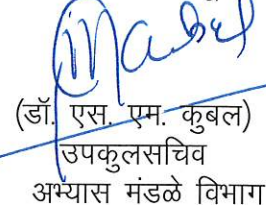 (डॉ. एस. एम. कुबल)
उपकुलसचिव
अभ्यास मंडळे विभाग